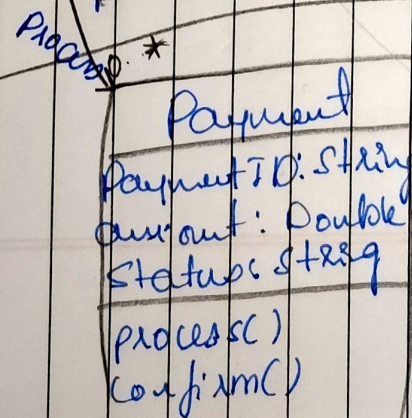 process
*
Payment
PaymentID: String
amount: Double
Status: String
process()
confirm()